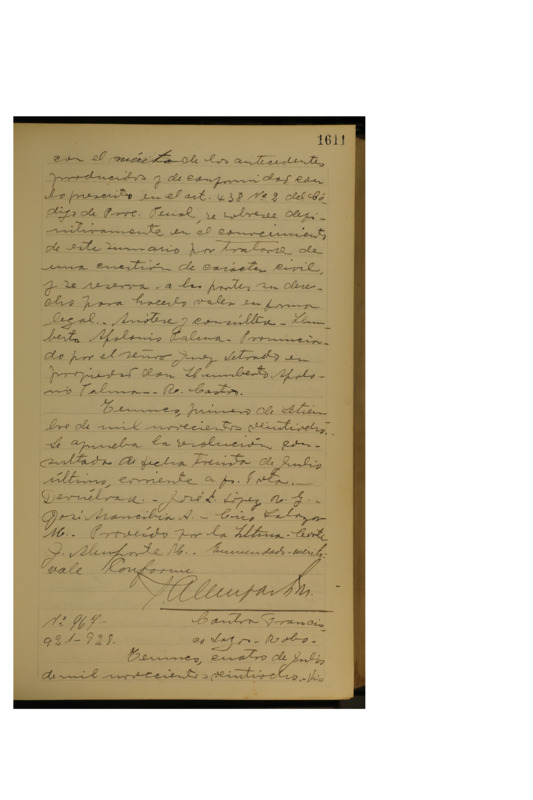 1611
con el mérito de los antecedentes
producidos y de conformidad con
lo prescrito en el art. 438 No 2 del Có
digo de Proc. Penal, se sobresee defi-
nitivamente en el conocimiento
de este sumario por tratarse de
una cuestión de carácter civil,
y se reserva a las partes su dere-
cho para hacerlo valer en forma
legal.- Anótese y consúltese.- Hum-
berto Apolonio Palma.- Pronuncia-
do por el señor Juez Letrado en
propiedad don Humberto Apolo-
nio Palma.- R. Castro.
Temuco, primero de Setiem-
bre de mil novecientos veintiocho.
Se aprueba la resolución con-
sultada de fecha treinta de Julio
último, corriente a fs. 
Devuélvase.- José S. López R. G.-
José Arancibia A.- Ciro Salazar
M.- Proveído por la Iltma. Corte
J. Alemparte M.- Enmendado-mérito-
vale Conforme
JAlemparte M.
No 969.- Contra Francis-
921-928. co Lagos.- Robo.-
Temuco, cuatro de Julio
de mil novecientos veintiocho.- Vis